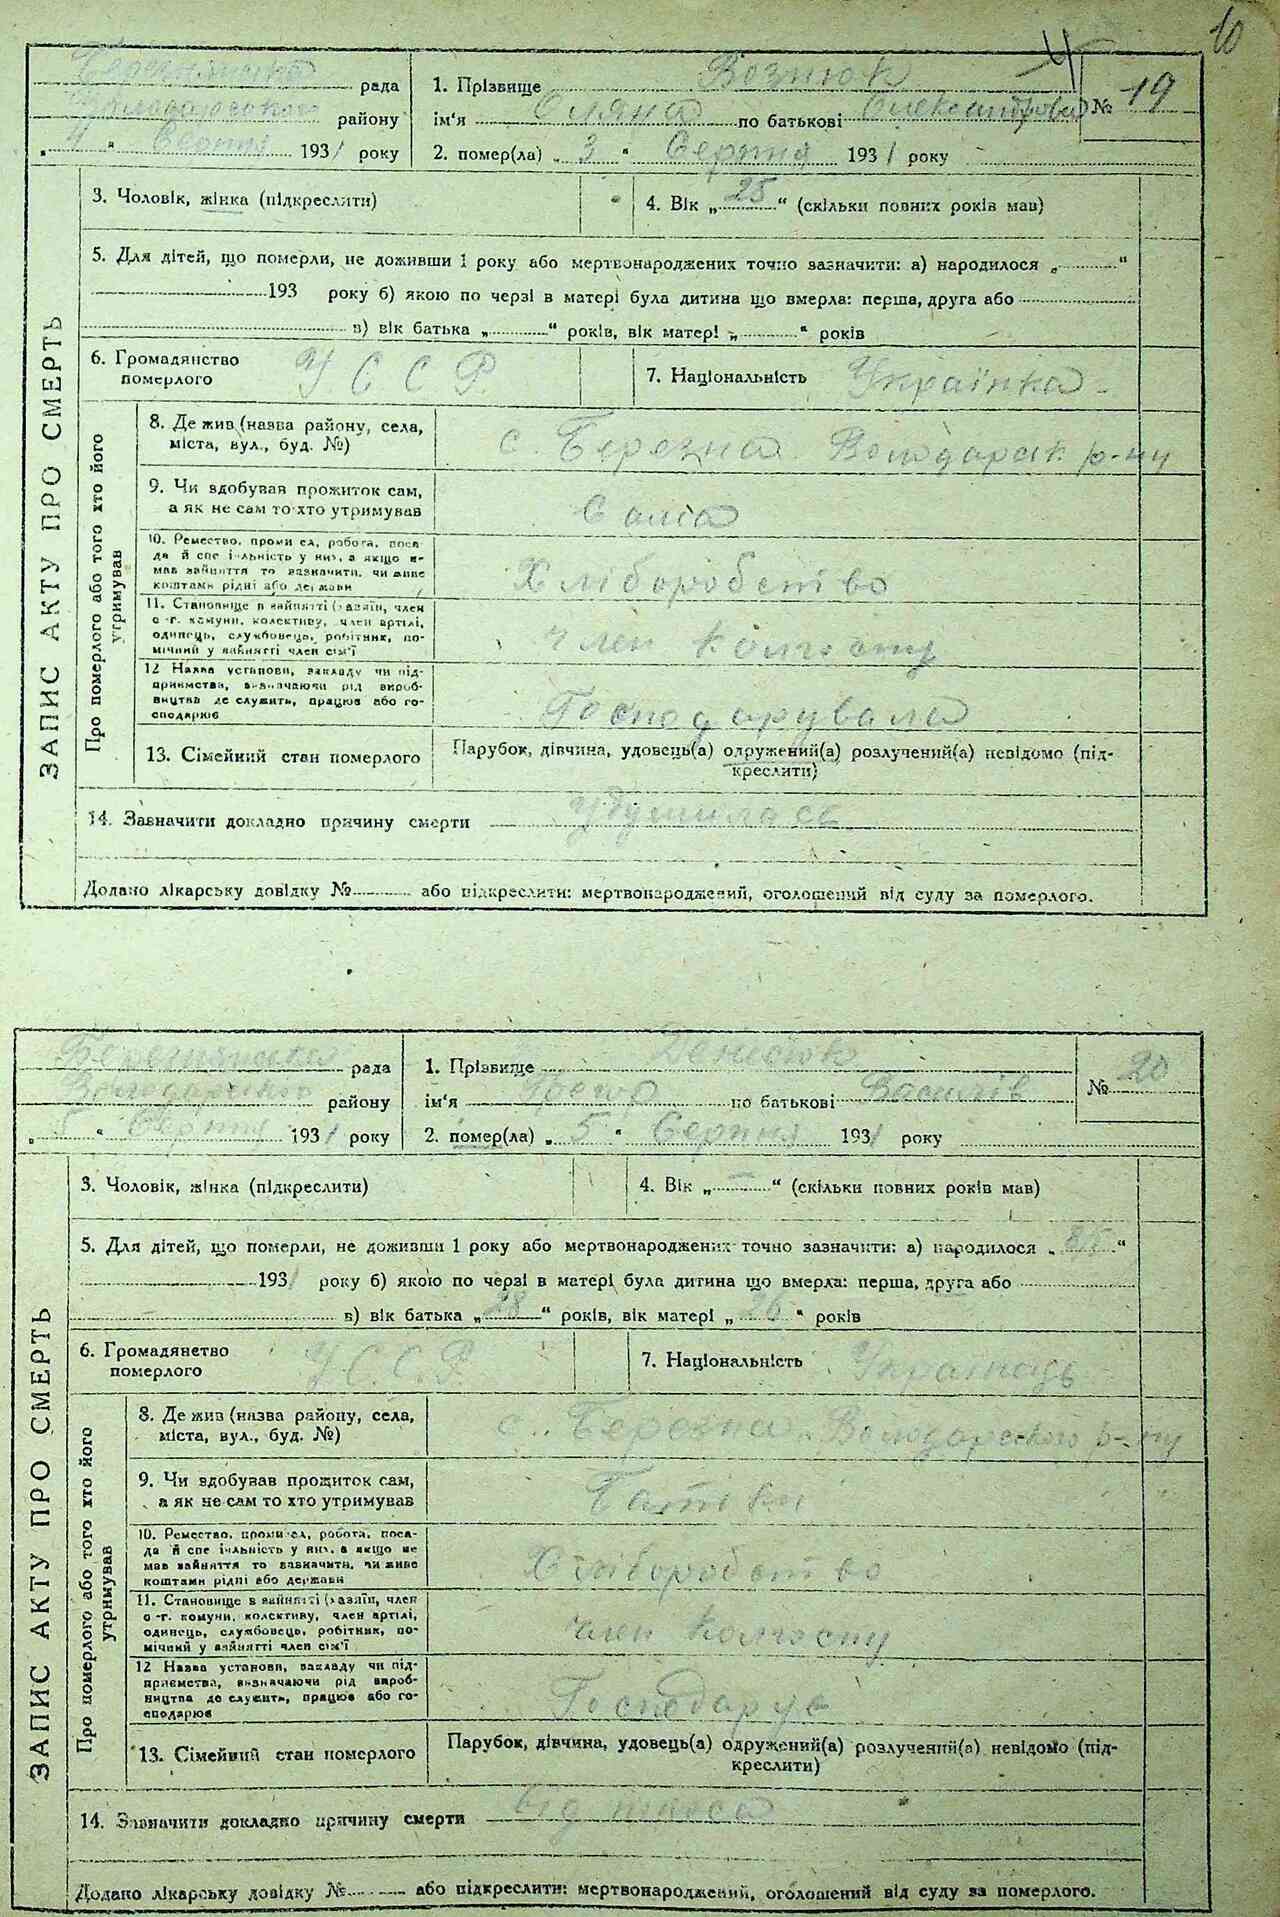 10
ЗАПИС АКТУ ПРО СМЕРТЬ
рада
Володарського району
„ 4 “ Серпня 1931 року
1. Прізвище Вознюк
ім‘я Оляна по батькові Олександрова
№ 19
2. помер(ла) „ 3 “ Серпня 1931 року
3. Чоловік, жінка (підкреслити)
4. Вік „ 25 “ (скільки повних років мав)
5. Для дітей, що померли, не доживши 1 року або мертвонароджених точно зазначити: а) народилося „ “
193 року б) якою по черзі в матері була дитина що вмерла: перша, друга або
в) вік батька „ “ років, вік матері „ “ років
6. Громадянство
померлого
У С С Р
7. Національність Українка
Про померлого або того хто його
утримував
8. Де жив (назва району, села,
міста, вул., буд. №)
с. Березна Володарськ р-ну
9. Чи здобував прожиток сам,
а як не сам то хто утримував
Сама
10. Ремество, проми сл, робота, поса-
да й спе іяльність у них, а якщо не
мав зайняття то зазначити, чи живе
коштами рідні або держави
Хліборобство
11. Становище в зайнятті (хазяїн, член
с -г. комуни, колективу, член артілі,
одинець, службовець, робітник, по-
мічний у зайнятті член сім‘ї
член колгоспу
12 Назва установи, закладу чи під-
приємства, визначаючи рід вироб-
ництва де служить, працює або го-
сподарює
Господарувала
13. Сімейний стан померлого
Парубок, дівчина, удовець(а) одружений(а) розлучений(а) невідомо (під-
креслити)
14. Зазначити докладно причину смерти
Додано лікарську довідку № або підкреслити: мертвонароджений, оголошений від суду за померлого.
ЗАПИС АКТУ ПРО СМЕРТЬ
рада
Володарського району
„ 5 “ Серпня 1931 року
1. Прізвище Денисюк
ім‘я по батькові Василів
№ 20
2. помер(ла) „ 5 “ Серпня 1931 року
3. Чоловік, жінка (підкреслити)
4. Вік „ — “ (скільки повних років мав)
5. Для дітей, що померли, не доживши 1 року або мертвонароджених точно зазначити: а) народилося „ “
1931 року б) якою по черзі в матері була дитина що вмерла: перша, друга або
в) вік батька „ 28 “ років, вік матері „ 26 “ років
6. Громадянетво
померлого
У.С.С.Р.
7. Національність Українець
Про померлого або того хто його
утримував
8. Де жив (назва району, села,
міста, вул., буд. №)
с. Березна Володарського р-ну
9. Чи здобував прожиток сам,
а як не сам то хто утримував
Батьки
10. Ремество, проми сл, робота, поса-
да й спе іяльність у них, а якщо не
мав зайняття то зазначити, чи живе
коштами рідні або держави
Хліборобство
11. Становище в зайнятті (хазяїн, член
с -г. комуни, колективу, член артілі,
одинець, службовець, робітник, по-
мічний у зайнятті член сім‘ї
член колгоспу
12 Назва установи, закладу чи під-
приємства, визначаючи рід вироб-
ництва де служить, працює або го-
сподарює
Господарує
13. Сімейний стан померлого
Парубок, дівчина, удовець(а) одружений(а) розлучений(а) невідомо (під-
креслити)
14. Зазначити докладно причину смерти від
Додано лікарську довідку № або підкреслити: мертвонароджений, оголошений від суду за померлого.